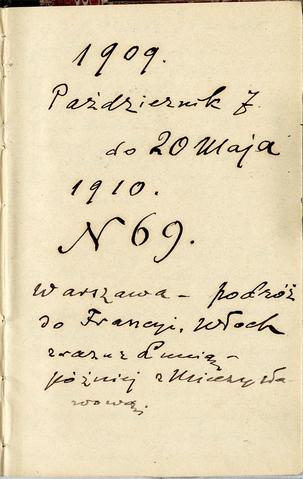 1909.
Październik 7.
do 20 Maja
1910.
N 69.
Warszawa – podróż
do Francyi, Włoch
wraz z Lunią –
później z Mieczysła
wową